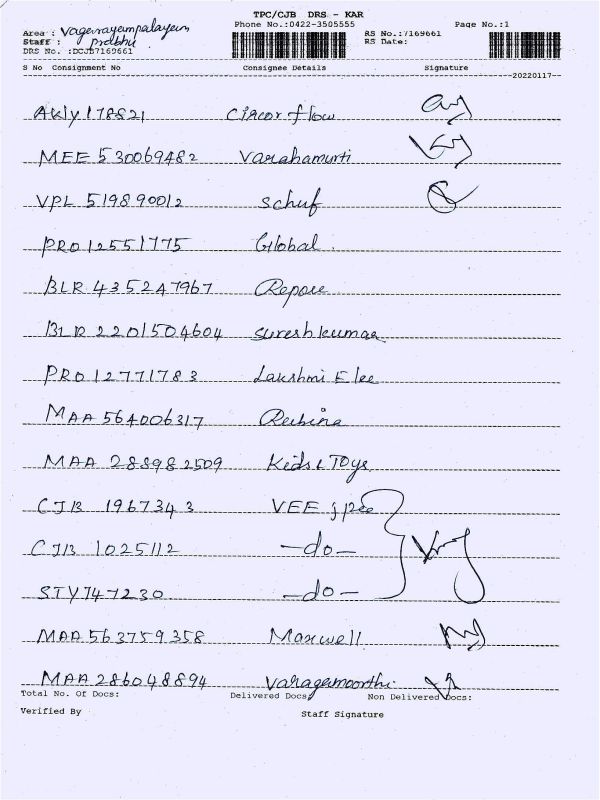 TPC/CJB DRS - KAR
Phone No.:0422-3505555 Page No.:1
Area : Vageirayempalayem RS No.:7169661
Staff : prabhu RS Date:
DRS No. :DCJB7169661
S No Consignment No Consignee Details Signature
20220117
178821 Circor flow
MEE 530069482 Varahamurti
VPL 519890012 Schuf
PRO 12551775 Global
BLR 435247967 Repose
BLR 2201504604 Sureshkumar
PRO 12771783 Lakshmi Elee
MAA 564006317 Rubina
MAA 288982509 Kids & Toys
CJB 1967343 VEE jpee
CJB 1025112 -do-
STY747230 -do-
MAA 563759358 Maxwell
MAA 286048894 Varagamoorthi
Total No. Of Docs: Delivered Docs: Non Delivered Docs:
Verified By Staff Signature